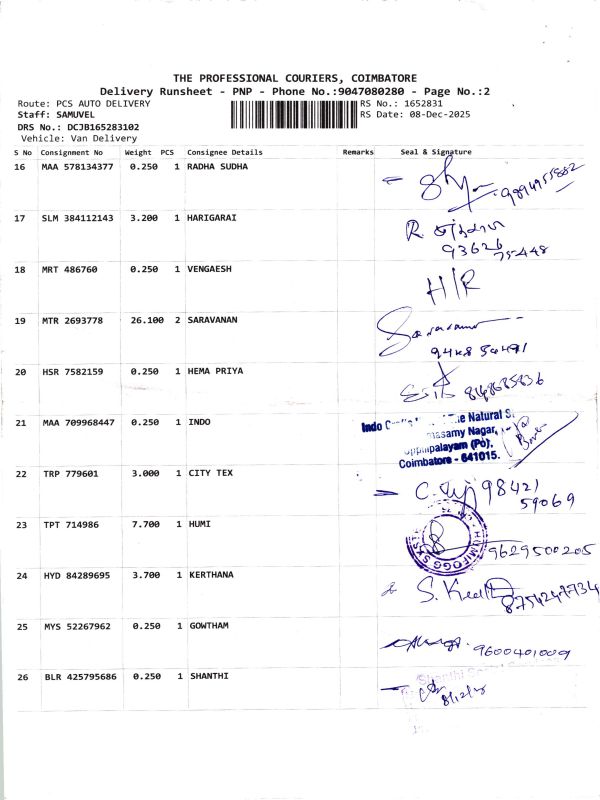 THE PROFESSIONAL COURIERS, COIMBATORE
Delivery Runsheet - PNP - Phone No.:9047080280 - Page No.:2
Route: PCS AUTO DELIVERY RS No.: 1652831
Staff: SAMUVEL RS Date: 08-Dec-2025
DRS No.: DCJB165283102
Vehicle: Van Delivery
S No Consignment No Weight PCS Consignee Details Remarks Seal & Signature
16 MAA 578134377 0.250 1 RADHA SUDHA
17 SLM 384112143 3.200 1 HARIGARAI
93626
75448
18 MRT 486760 0.250 1 VENGAESH H/R
19 MTR 2693778 26.100 2 SARAVANAN
20 HSR 7582159 0.250 1 HEMA PRIYA
21 MAA 709968447 0.250 1 INDO
Indo
Natural
Nagar,
(Po),
Coimbatore - 641015.
22 TRP 779601 3.000 1 CITY TEX 98421
59069
23 TPT 714986 7.700 1 HUMI HUMIFOGG
9629500205
24 HYD 84289695 3.700 1 KERTHANA
25 MYS 52267962 0.250 1 GOWTHAM 9600401009
26 BLR 425795686 0.250 1 SHANTHI Shanthi
8/12/25